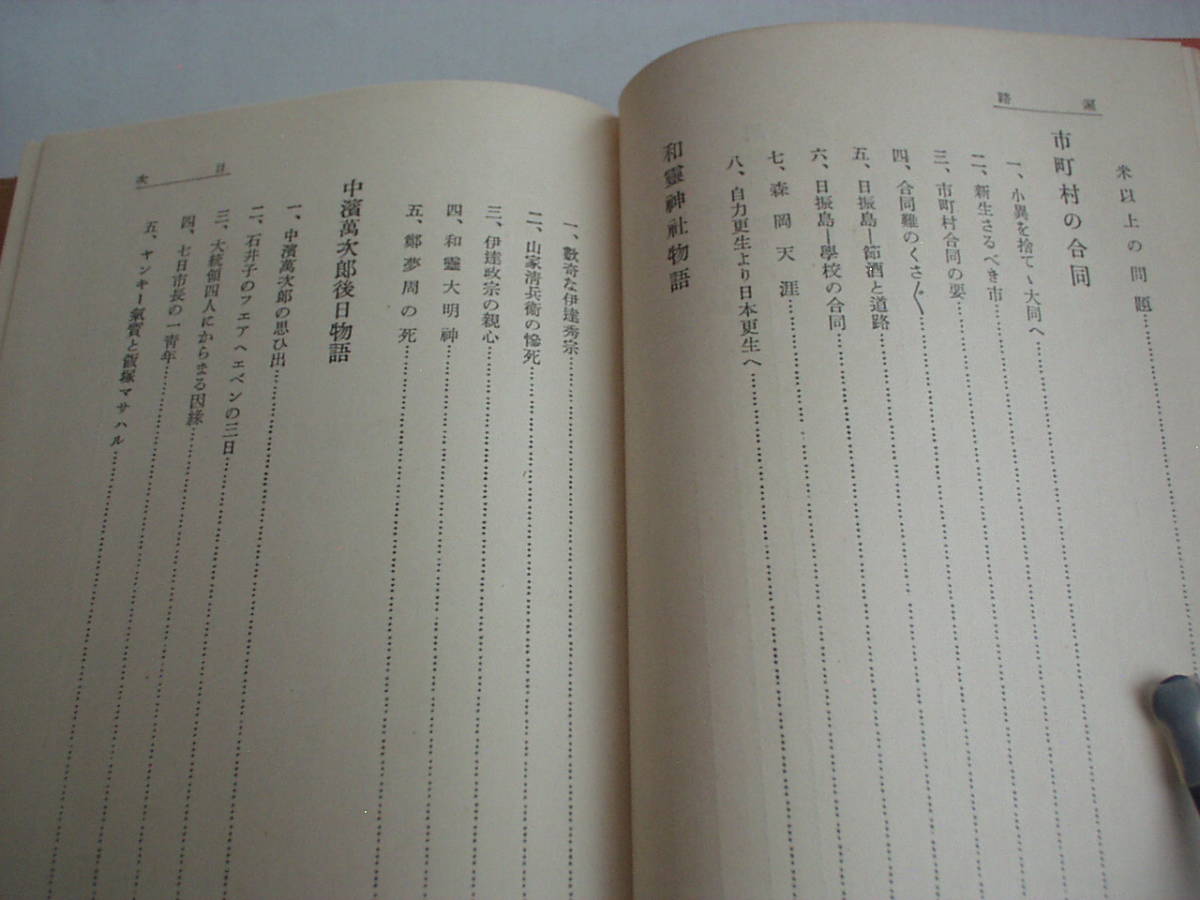 米以上の問題
市町村の合同
一、小異を捨てゝ大同へ
二、新生さるべき市
三、市町村合同の要
四、合同難のくさ〴〵
五、日振島―節酒と道路
六、日振島―學校の合同
七、森岡天涯
八、自力更生より日本更生へ
和靈神社物語
目次
一、數奇な伊達秀宗
二、山家淸兵衛の慘死
三、伊達政宗の親心
四、和靈大明神
五、鄭夢周の死
中濱萬次郎後日物語
一、中濱萬次郎の思ひ出
二、石井子のフェアヘェベンの三日
三、大統領四人にからまる因緣
四、七日市長の一靑年
五、ヤンキー氣質と飯塚マサハル